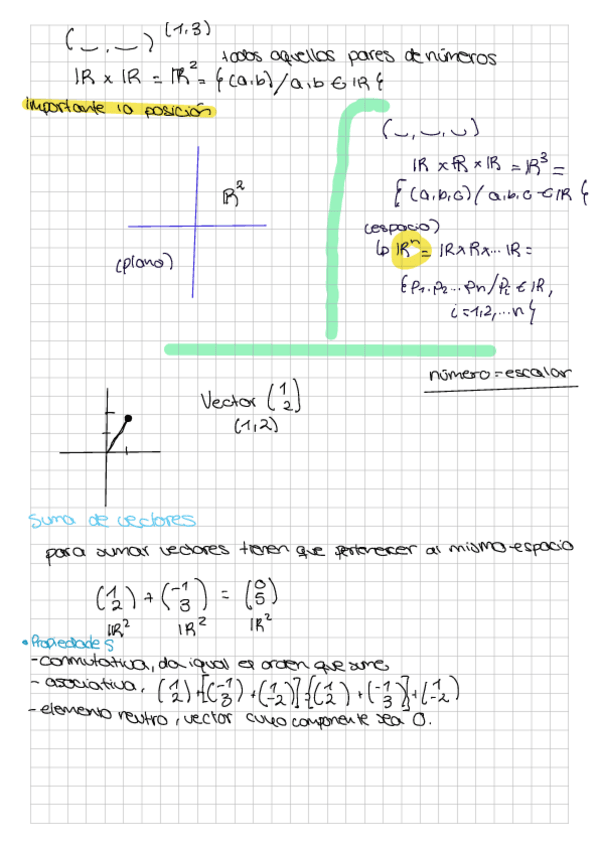 (_, _) (1,3)
todos aquellos pares de números
IR x IR = IR² = {(a,b) / a,b ∈ IR}
importante la posición
IR²
(plano)
(_, _, _)
IR x IR x IR = IR³ =
{(a,b,c) / a,b,c ∈ IR}
(espacio)
↳ IRⁿ = IR x IR x ... IR =
{P₁, P₂ ... Pn / Pᵢ ∈ IR,
i = 1,2, ... n}
número = escalar
Vector (1 2)
(1,2)
Suma de vectores
para sumar vectores tienen que pertenecer al mismo espacio
(1 2) + (-1 3) = (0 5)
IR² IR² IR²
• Propiedades
- conmutativa, da igual el orden que sume
- asociativa, (1 2) + [(-1 3) + (1 -2)] = [(1 2) + (-1 3)] + (1 -2)
- elemento neutro, vector cuyo componente sea 0.